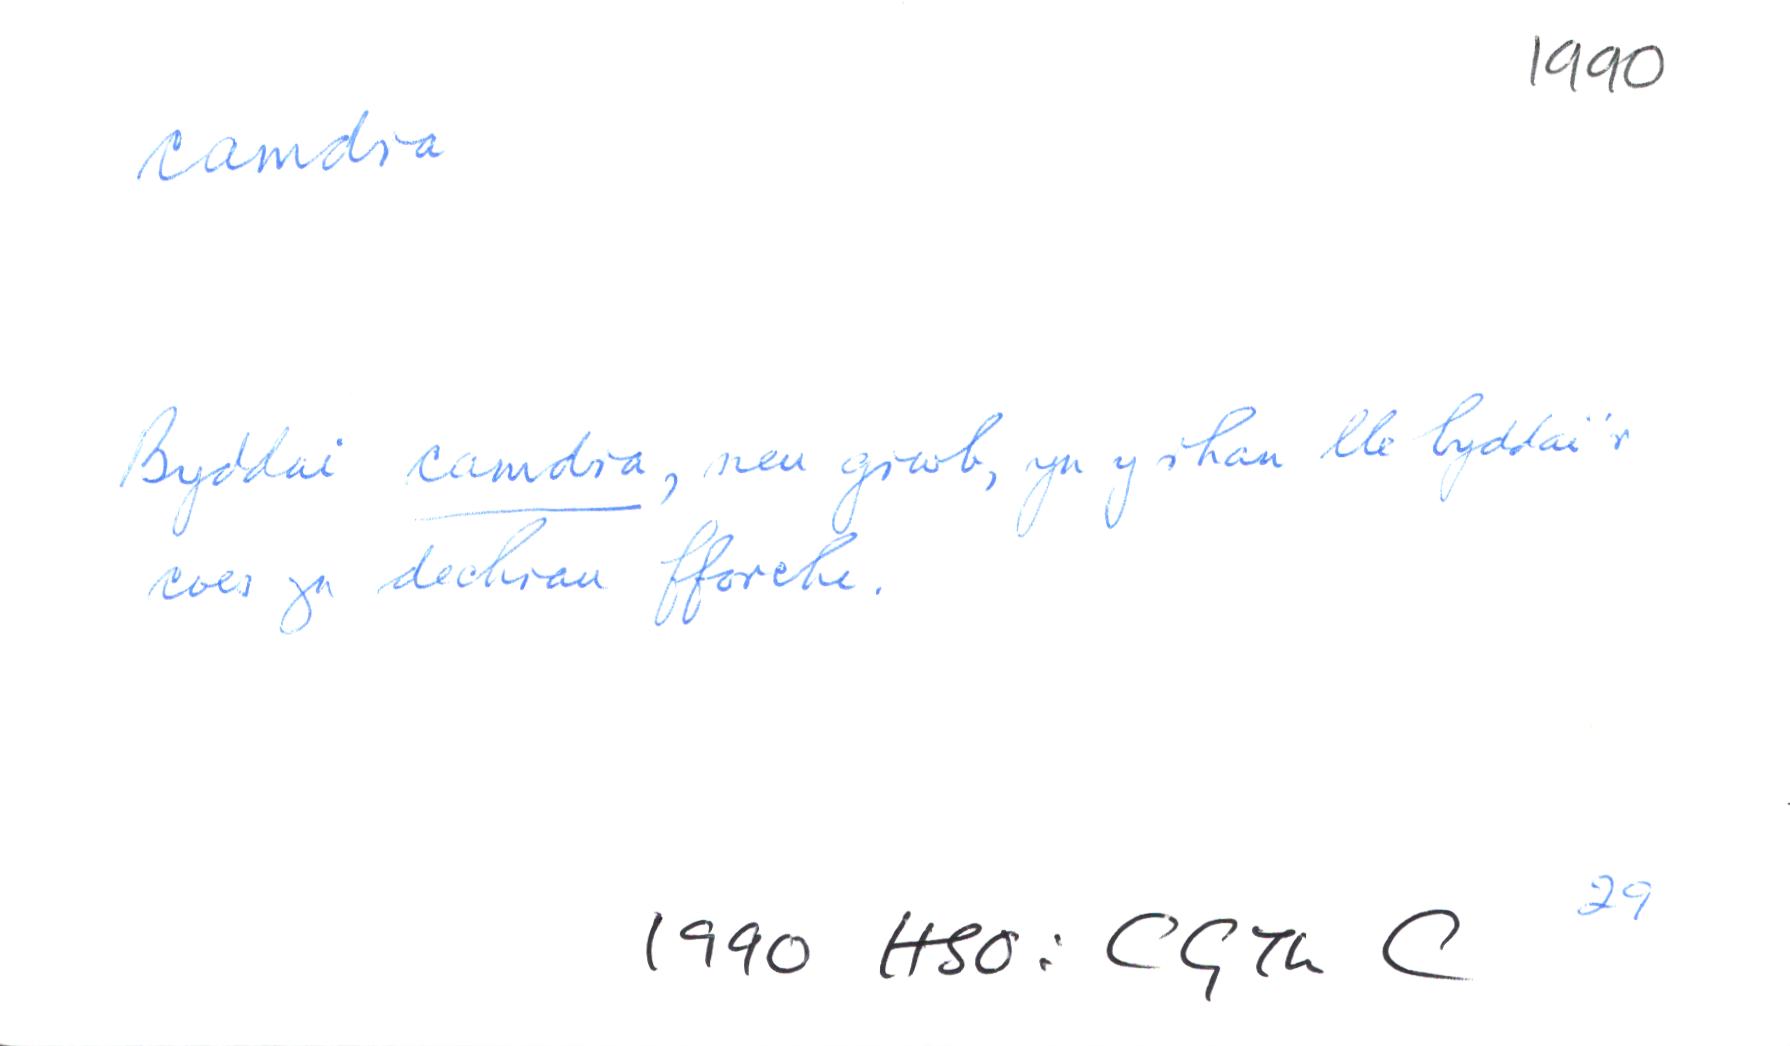 1990
camdra
Byddai camdra, neu grwb, yn y rhan lle byddai'r
coes yn dechrau fforche.
29
1990 HSO: CGTh C